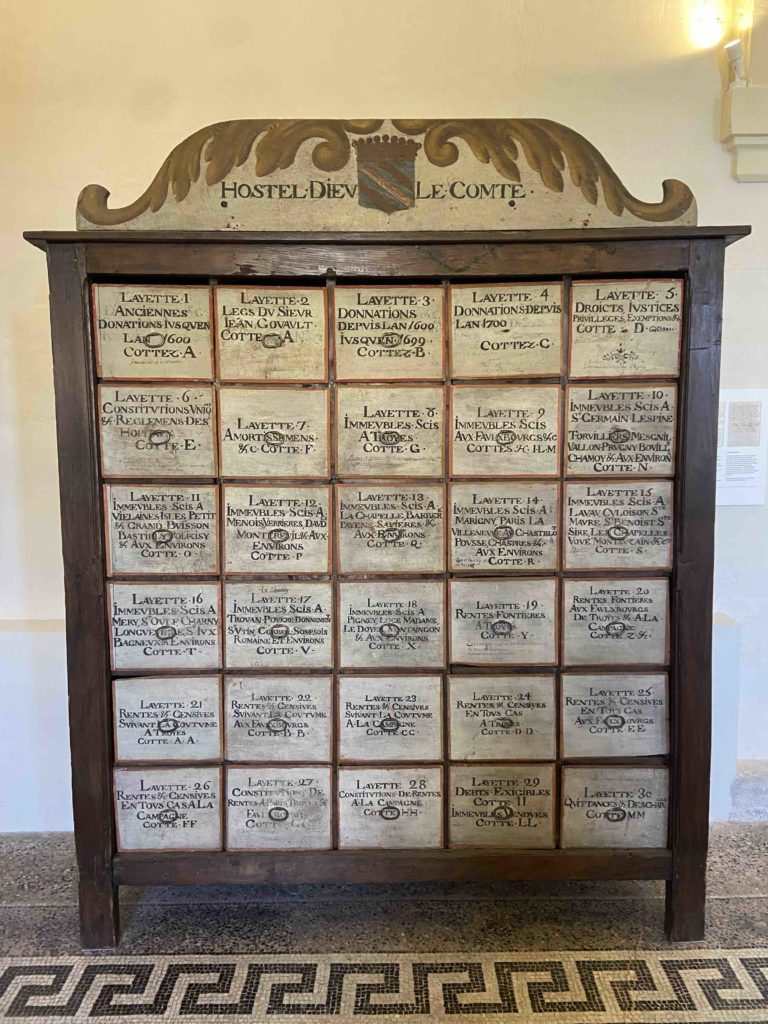 HOSTEL·DIEV LE·COMTE·
LAYETTE·1
ANCIENNES
DONATIONS IVSQVEN
LAN 1600
COTTEZ·A
LAYETTE·2
LEGS DV SIEVR
IEAN GOVAVLT·
COTTE A
LAYETTE·3
DONNATIONS
DEPVIS LAN 1600
IVSQVEN 1699
COTTEZ·B
LAYETTE 4
DONNATIONS·DEPVIS
LAN 1700
COTTEZ·C
LAYETTE·5
DROICTS IVSTICES
PRIVILLEGES, EXEMPTIONS &c
COTTE · D
LAYETTE·6·
CONSTITVTIONS
& REGLEMENS DES
COTTE·E·
LAYETTE·7
AMORTISSEMENS·
&c COTTE·F·
LAYETTE·8
IMMEVBLES·SCIS
A TROYES
COTTE·G·
LAYETTE 9
IMMEVBLES·SCIS A
AVX FAVLXBOVRGS &c
COTTES H·M
LAYETTE·10·
IMMEVBLES SCIS A
ST GERMAIN LESPINE
TORVILLIERS MESGNIL
VALLON PRVGNY BOVILL
CHAMOY & AVX ENVIRON
COTTE·N·
LAYETTE·11
IMMEVBLES SCIS A
VIELAINES ISLES PETIT
& GRAND BVISSON
& AVX ENVIRONS
COTTE·O·
LAYETTE·12·
IMMEVBLES·SCIS·A·
MENOIS VERRIERES, DAVD
& AVX·
ENVIRONS
COTTE·P
LAYETTE·13·
IMMEVBLES·SCIS·A·
LA CHAPELLE BARBER
PAYENS SAVIERES &c
AVX ENVIRONS
COTTE·Q·
LAYETTE 14
IMMEVBLES·SCIS A
MARIGNY PARIS LA
VILLENEVVE AV CHASTELOT
POVSSE CHASTRES &c
AVX ENVIRONS
COTTE·R
LAYETTE 15
IMMEVBLES SCIS·A
LAVAV CVLOISON
MAVRE ST BENOIST ST
SIRE LES CHAPELLES
COTTE·S
LAYETTE·16
IMMEVBLES SCIS A
MERY ST OVLF CHARNY
BAGNEVX & ENVIRONS
COTTE·T·
LAYETTE·17·
IMMEVBLES SCIS·A
SOMPSOIS
ROMAINE ET ENVIRONS
COTTE·V·
LAYETTE 18
IMMEVBLES SCIS A
PIGNEY LOGE MADAME,
& AVX ENVIRONS
COTTE·X·
LAYETTE·19·
RENTES FONTIERES
A TROYES
COTTE·Y
LAYETTE·20
RENTES FONTIERES
AVX FAVLXBOVRGS
DE TROYES & A·LA
CAMPAGNE
COTTE·Z·&
LAYETTE 21
RENTES & CENSIVES
SVIVANT LA COVTVME
A TROYES
COTTE·A·A·
LAYETTE·22·
RENTES & CENSIVES
SVIVANT·LA COVTVME
AVX FAVLXBOVRGS
COTTE·B·B·
LAYETTE·23
RENTES & CENSIVES
SVIVANT LA COVTVME
A·LA·CAMPAGNE
COTTE·CC
LAYETTE·24
RENTES & CENSIVES
EN TOVS CAS
A TROYES
COTTE·D·D
LAYETTE·25
RENTES & CENSIVES
EN TOVS CAS A·
AVX FAVLXBOVRGS
COTTE·EE
LAYETTE·26
RENTES & CENSIVES
EN TOVS CAS A·LA
CAMPAGNE
COTTE·FF
LAYETTE·27·
CONSTITVTIONS DE
RENTES A PARIS TROYES &
COTTE·GG
LAYETTE 28
CONSTITVTIONS·DE·RENTES
A·LA CAMPAGNE
COTTE·HH
LAYETTE 29
DEBTS EXIGIBLES
COTTE·II
IMMEVBLES VENDVES
COTTE·LL·
LAYETTE·30
QVITTANCES & DESCHAR
COTTE·MM